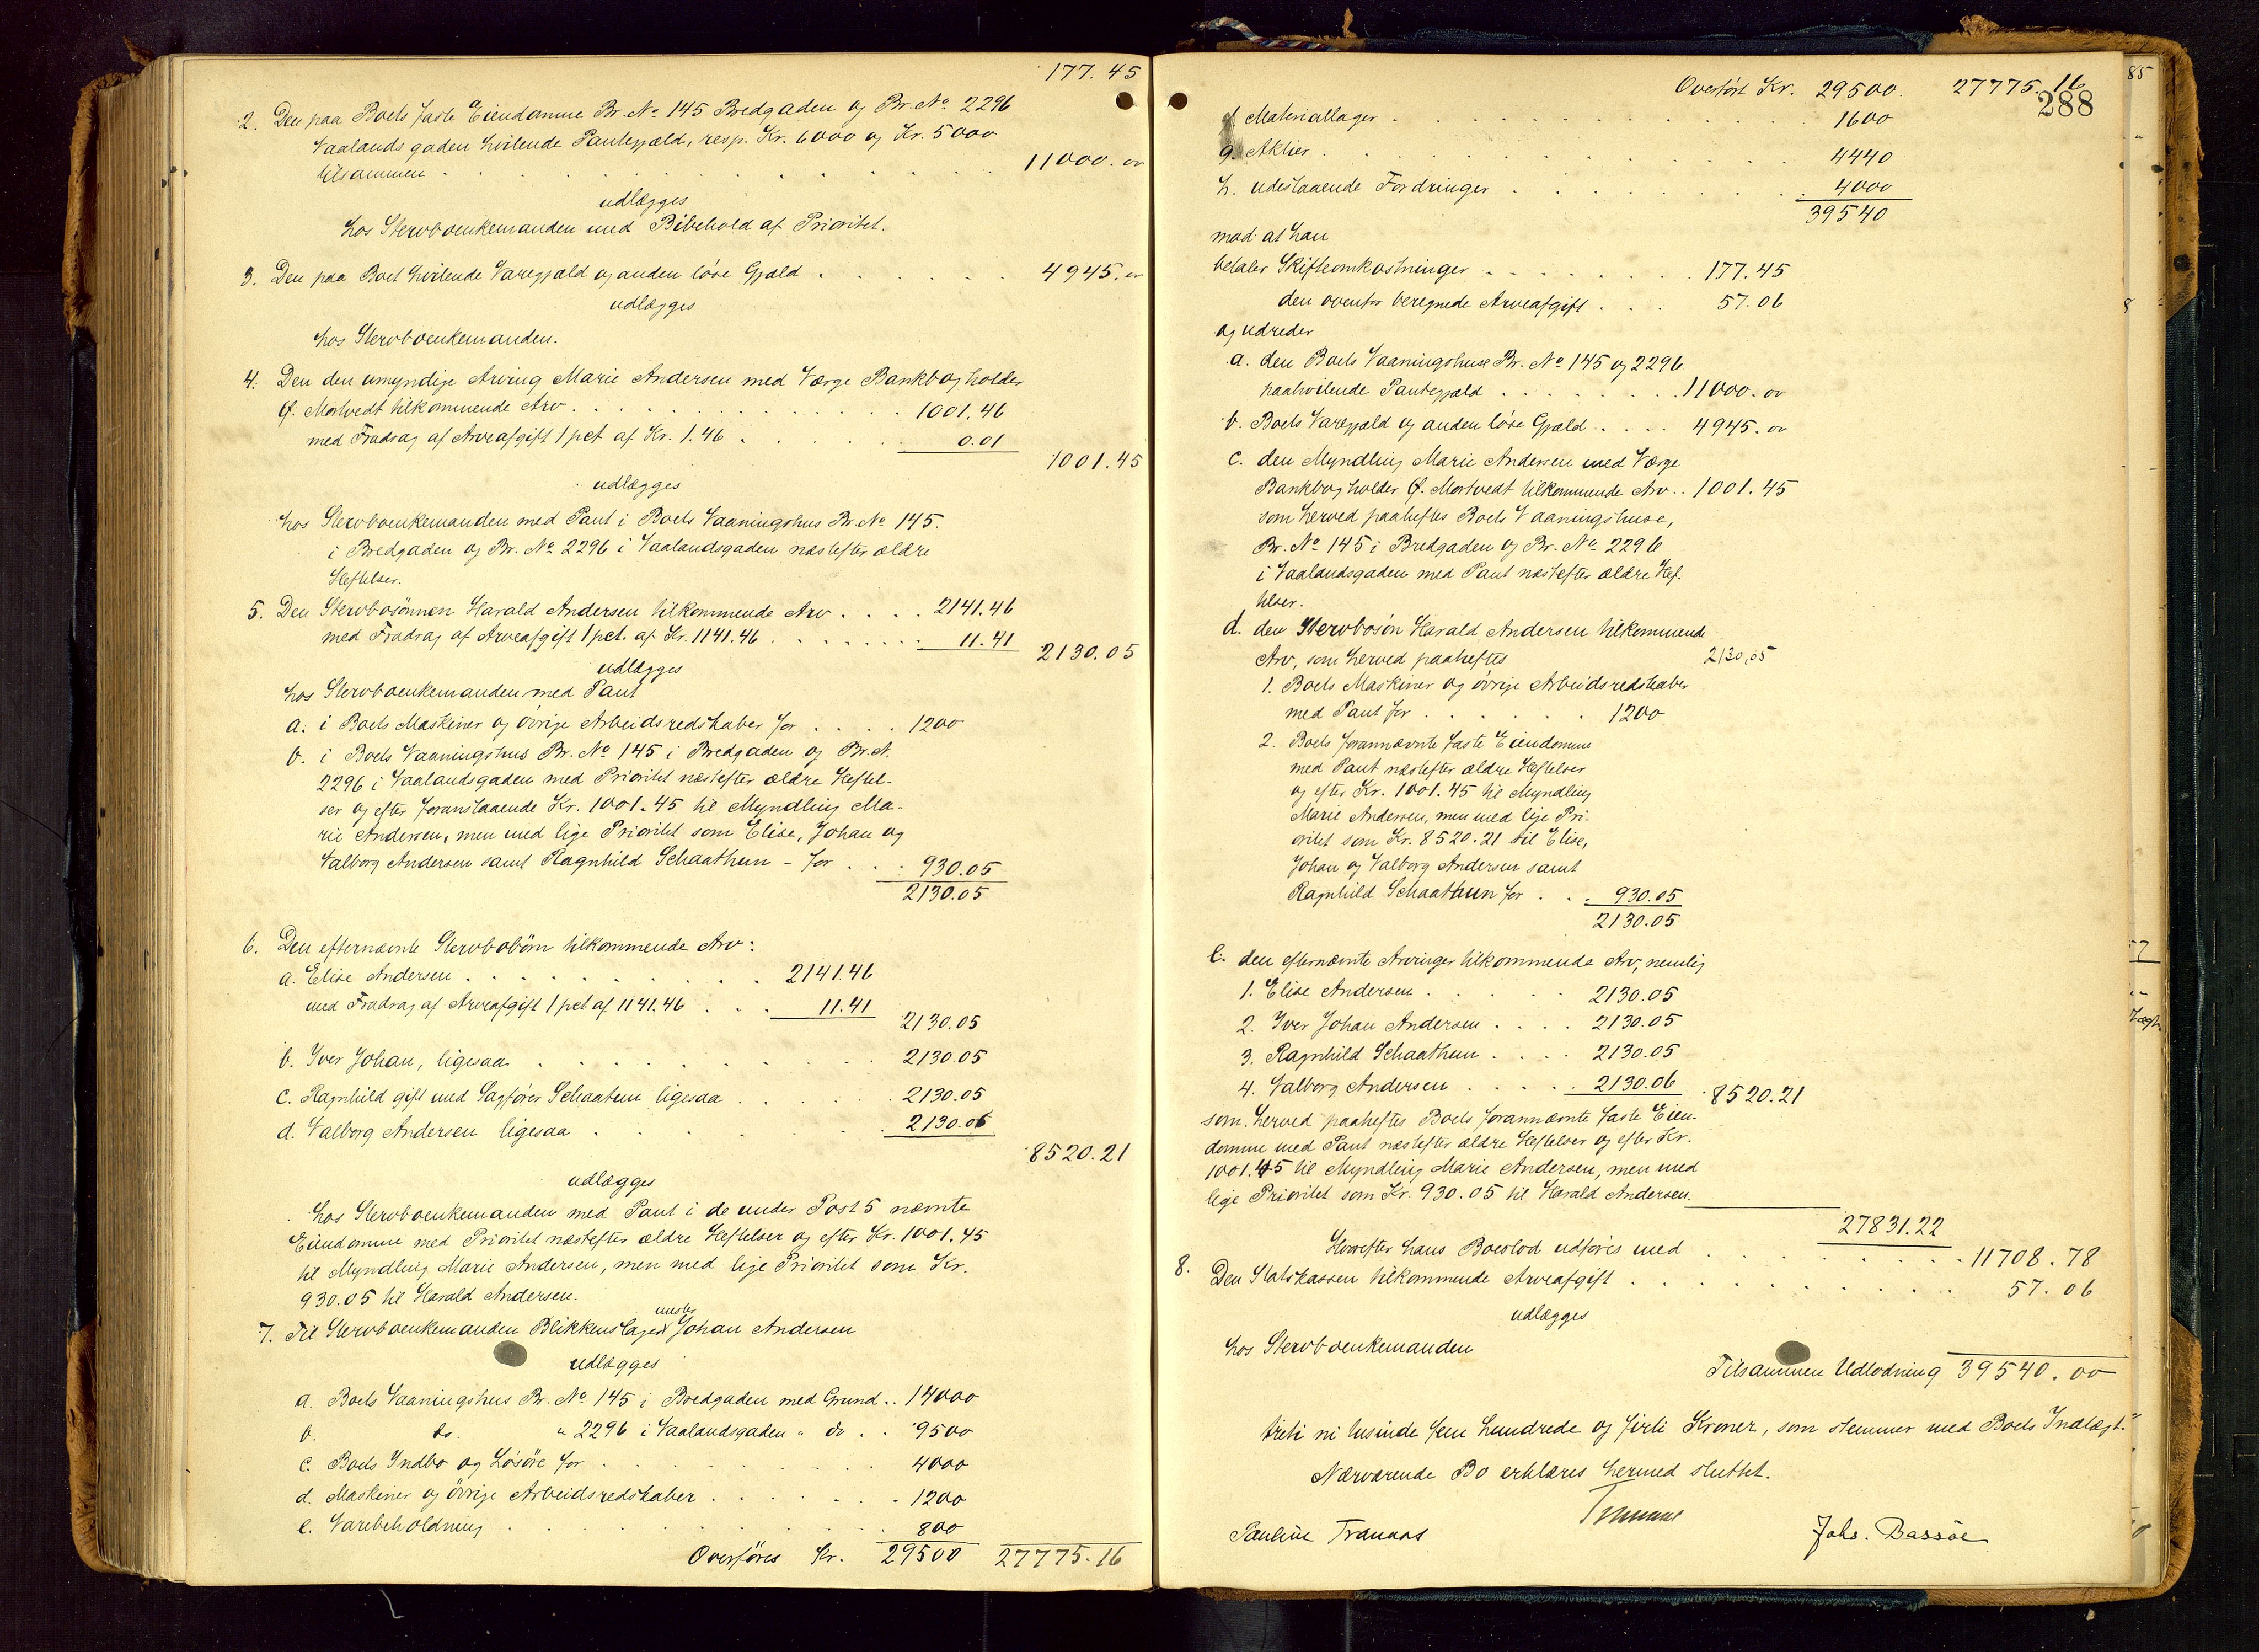 177.45
2. Den paa Boets faste Eiendomme Br. No 145 Bredgaden og Br. No 2296
Vaalandsgaden hvilende Pantegjæld, resp. Kr. 6000 og Kr. 5000
tilsammen . . . . . 11000.00
udlægges
hos Stervboenkemanden med Bibehold af Prioritet.
3. Den paa Boet hvilende Varegjæld og anden løse Gjæld . . . . . 4945.00
udlægges
hos Stervboenkemanden.
4. Den den umyndige Arving Marie Andersen med Værge Bankbogholder
Mortvedt tilkommende Arv . . . . . 1001.46
med Fradrag af Arveafgift 1 pct af Kr. 1.46 . . . 0.01
1001.45
udlægges
hos Stervboenkemanden med Pant i Boets Vaaningshus Br. No 145.
i Bredgaden og Br. No 2296 i Vaalandsgaden næstefter ældre
Heftelser.
5. Den Stervbosønnen Harald Andersen tilkommende Arv . . . . 2141.46
med Fradrag af Arveafgift 1 pct. af Kr. 1141.46 . . . . . 11.41
2130.05
udlægges
hos Stervboenkemanden med Pant
a. i Boets Maskiner og øvrige Arbeidsredskaber for . . . . 1200
b. i Boets Vaaningshus Br. No 145 i Bredgaden og Br. N.
2296 i Vaalandsgaden med Prioritet næstefter ældre Heftel-
ser og efter foranstaaende Kr. 1001.45 til Myndling Ma-
rie Andersen, men med lige Prioritet som Elise, Johan og
Valborg Andersen samt Ragnhild Schaathun - for . . . 930.05
2130.05
6. Den efternævnte Stervbobørn tilkommende Arv:
a. Elise Andersen . . . . . 2141.46
med Fradrag af Arveafgift 1 pct af 1141.46 . . . 11.41
2130.05
b. Iver Johan, ligesaa . . . . . 2130.05
c. Ragnhild gift med Sagfører Schaatun ligesaa . . . . . 2130.05
d. Valborg Andersen ligesaa . . . . . 2130.06
8520.21
udlægges
hos Stervboenkemanden med Pant i de under Post 5 nævnte
Eiendomme med Prioritet næstefter ældre Heftelser og efter Kr. 1001.45
til Myndling Marie Andersen, men med lige Prioritet som Kr.
930.05 til Harald Andersen.
mester
7. Til Stervboenkemanden Blikkenslager Johan Andersen
udlægges
a. Boets Vaaningshus Br. No 145 i Bredgaden med Grund . . 14000
b. do. " 2296 i Vaalandsgaden " do . . 9500
c. Boets Indbo og Løsøre for . . . . . 4000
d. Maskiner og øvrige Arbeidsredskaber . . . . . 1200
e. Varebeholdning . . . . . 800
Overføres Kr. 29500 27775.16
Overført Kr. 29500. 27775.16
288
f Materiallager . . . . . 1600
g. Aktier . . . . . 4440
h. udestaaende Fordringer . . . . . 4000
39540
mod at han
betaler Skifteomkostninger . . . . . 177.45
den ovenfor beregnede Arveafgift . . . 57.06
og udreder
a. den Boets Vaaningshuse Br. No 145 og 2296
paahvilende Pantegjæld . . . . . 11000.00
b. Boets Varegjæld og anden løse Gjæld . . . . 4945.00
c. den Myndling Marie Andersen med Værge
Bankbogholder Mortvedt tilkommende Arv . . 1001.45
som herved paaheftes Boets Vaaningshuse,
Br. No 145 i Bredgaden og Br. No 2296
i Vaalandsgaden med Pant næstefter ældre Hef-
telser.
d. den Stervbosøn Harald Andersen tilkommende
Arv, som herved paaheftes 2130,05
1. Boets Maskiner og øvrige Arbeidsredskaber
med Pant for . . . . . 1200
2. Boets forannævnte faste Eiendomme
med Pant næstefter ældre Heftelser
og efter Kr. 1001.45 til Myndling
Marie Andersen, men med lige Pri-
oritet som Kr. 8520.21 til Elise,
Johan og Valborg Andersen samt
Ragnhild Schaathun for . . . 930.05
2130.05
e. den efternævnte Arvinger tilkommende Arv, nemlig
1. Elise Andersen . . . . . 2130.05
2. Iver Johan Andersen . . . . 2130.05
3. Ragnhild Schaathun . . . . 2130.05
4. Valborg Andersen . . . . . 2130.06 8520.21
som herved paaheftes Boets forannævnte faste Eien-
domme med Pant næstefter ældre Heftelser og efter Kr.
1001.45 til Myndling Marie Andersen, men med
lige Prioritet som Kr. 930.05 til Harald Andersen.
27831.22
Hvorefter hans Boeslod udføres med . . . . . 11708.78
8. Den Statskassen tilkommende Arveafgift . . . . . 57.06
udlægges
hos Stervboenkemanden
Tilsammen Udlodning 39540.00
treti ni tusinde fem hundrede og firti Kroner, som stemmer med Boets Indtægt.
Nærværende Bo erklæres hermed sluttet.
Pauline Tranaas
Johs. Bassøe